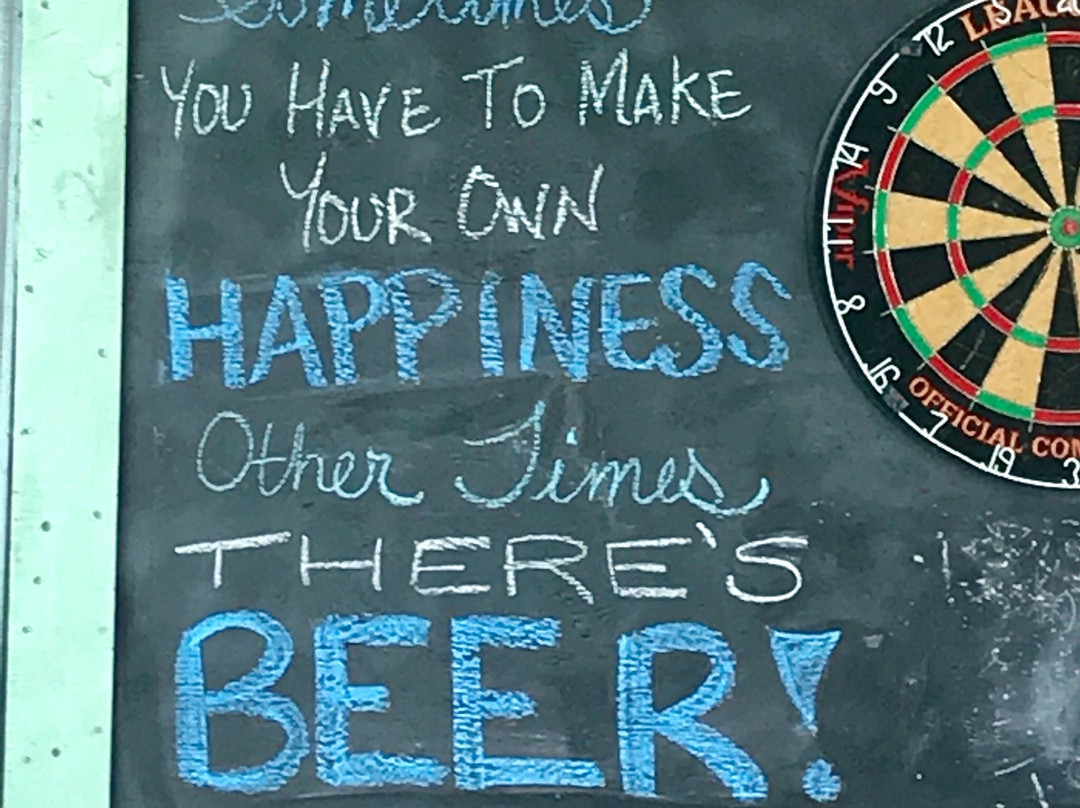 Sometimes
YOU HAVE TO MAKE
YOUR OWN
HAPPINESS
Other Times
THERE'S
BEER!
12
9
14
Viper
11
8
16
7
19
3
OFFICIAL